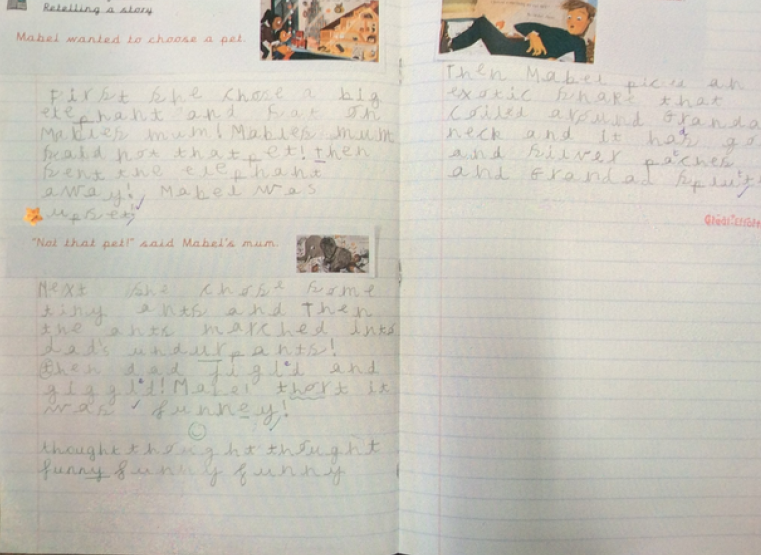 Retelling a story
Mabel wanted to choose a pet.
First she chose a big
elephant and sat on
Mables mum! Mables mum
said not that pet! then
sent the elephant
away! Mabel was
upset!
"Not that pet!" said Mabel's mum.
Next she chose some
tiny ants and Then
the ants marched into
dad's underpants!
then dad jigl'd and
giggl'd! Mabel thort it
was funney!
thought thought thought
funny funny funny
Then Mabel piced an
exotic snake that
coiled around Granda
neck and it had go
and silver paches
and Grandad